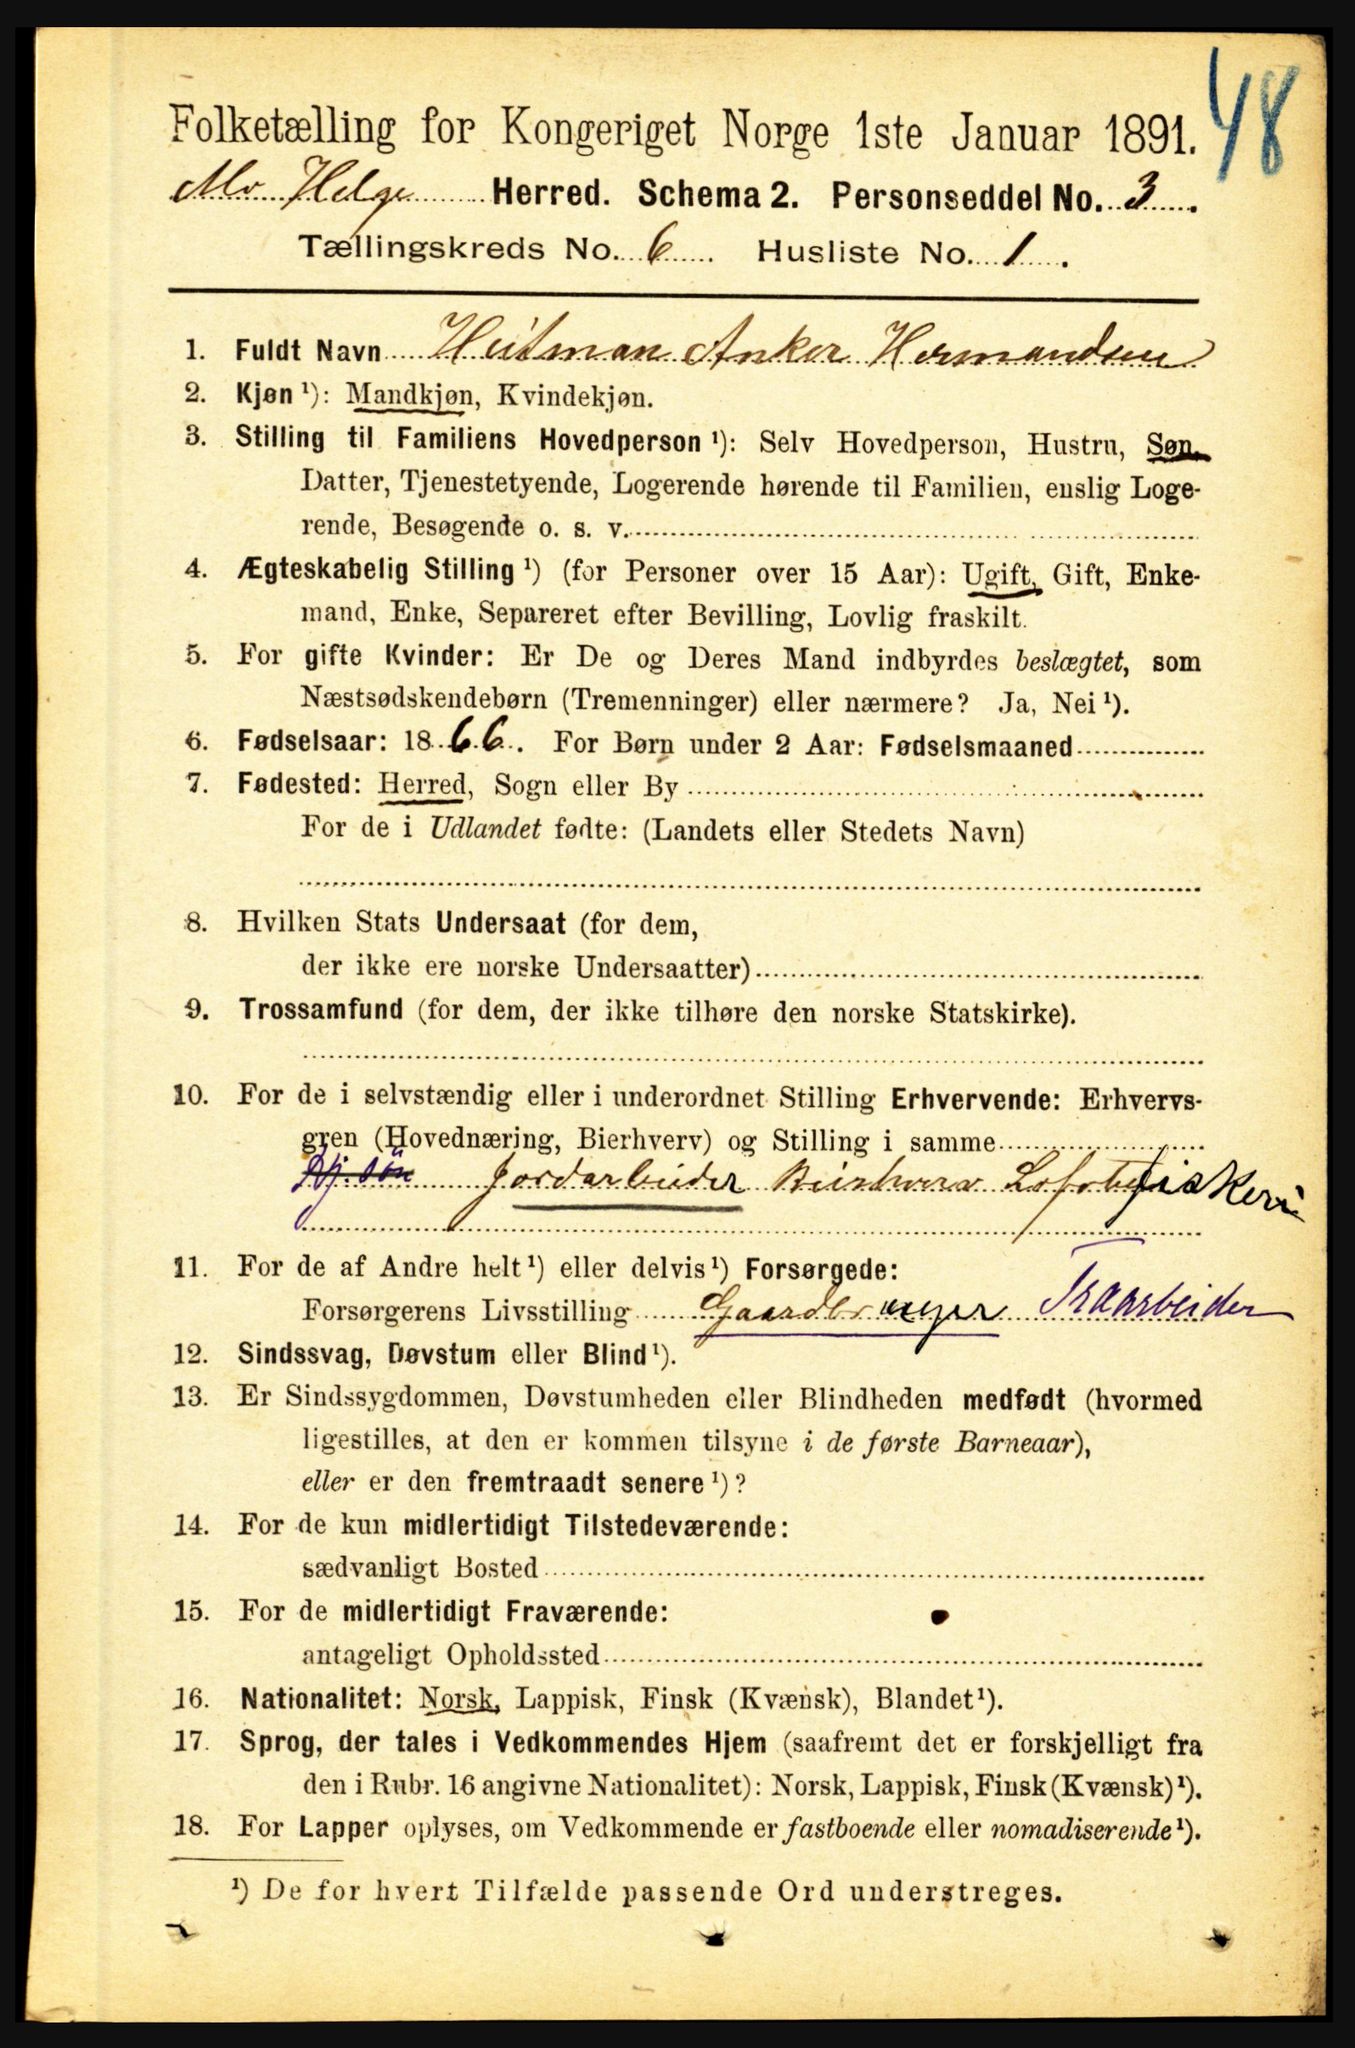 48
Folketælling for Kongeriget Norge 1ste Januar 1891.
Herred. Schema 2. Personseddel No. 3.
Tællingskreds No. 6. Husliste No. 1.
1. Fuldt Navn Heitman Anker Hermandsen
2. Kjøn ¹): Mandkjøn, Kvindekjøn.
3. Stilling til Familiens Hovedperson ¹): Selv Hovedperson, Hustru, Søn,
Datter, Tjenestetyende, Logerende hørende til Familien, enslig Loge-
rende, Besøgende o. s. v.
4. Ægteskabelig Stilling ¹) (for Personer over 15 Aar): Ugift, Gift, Enke-
mand, Enke, Separeret efter Bevilling, Lovlig fraskilt.
5. For gifte Kvinder: Er De og Deres Mand indbyrdes beslægtet, som
Næstsødskendebørn (Tremenninger) eller nærmere? Ja, Nei ¹).
6. Fødselsaar: 1866. For Børn under 2 Aar: Fødselsmaaned
7. Fødested: Herred, Sogn eller By
For de i Udlandet fødte: (Landets eller Stedets Navn)
8. Hvilken Stats Undersaat (for dem,
der ikke ere norske Undersaatter)
9. Trossamfund (for dem, der ikke tilhøre den norske Statskirke).
10. For de i selvstændig eller i underordnet Stilling Erhvervende: Erhvervs-
gren (Hovednæring, Bierhverv) og Stilling i samme
Jordarbeider Bierhverv Lofotfiskeri
11. For de af Andre helt ¹) eller delvis ¹) Forsørgede:
Forsørgerens Livsstilling Gaardbruger Træarbeider
12. Sindssvag, Døvstum eller Blind ¹).
13. Er Sindssygdommen, Døvstumheden eller Blindheden medfødt (hvormed
ligestilles, at den er kommen tilsyne i de første Barneaar),
eller er den fremtraadt senere ¹)?
14. For de kun midlertidigt Tilstedeværende:
sædvanligt Bosted
15. For de midlertidigt Fraværende:
antageligt Opholdssted
16. Nationalitet: Norsk, Lappisk, Finsk (Kvænsk), Blandet ¹).
17. Sprog, der tales i Vedkommendes Hjem (saafremt det er forskjelligt fra
den i Rubr. 16 angivne Nationalitet): Norsk, Lappisk, Finsk (Kvænsk) ¹).
18. For Lapper oplyses, om Vedkommende er fastboende eller nomadiserende ¹).
¹) De for hvert Tilfælde passende Ord understreges.